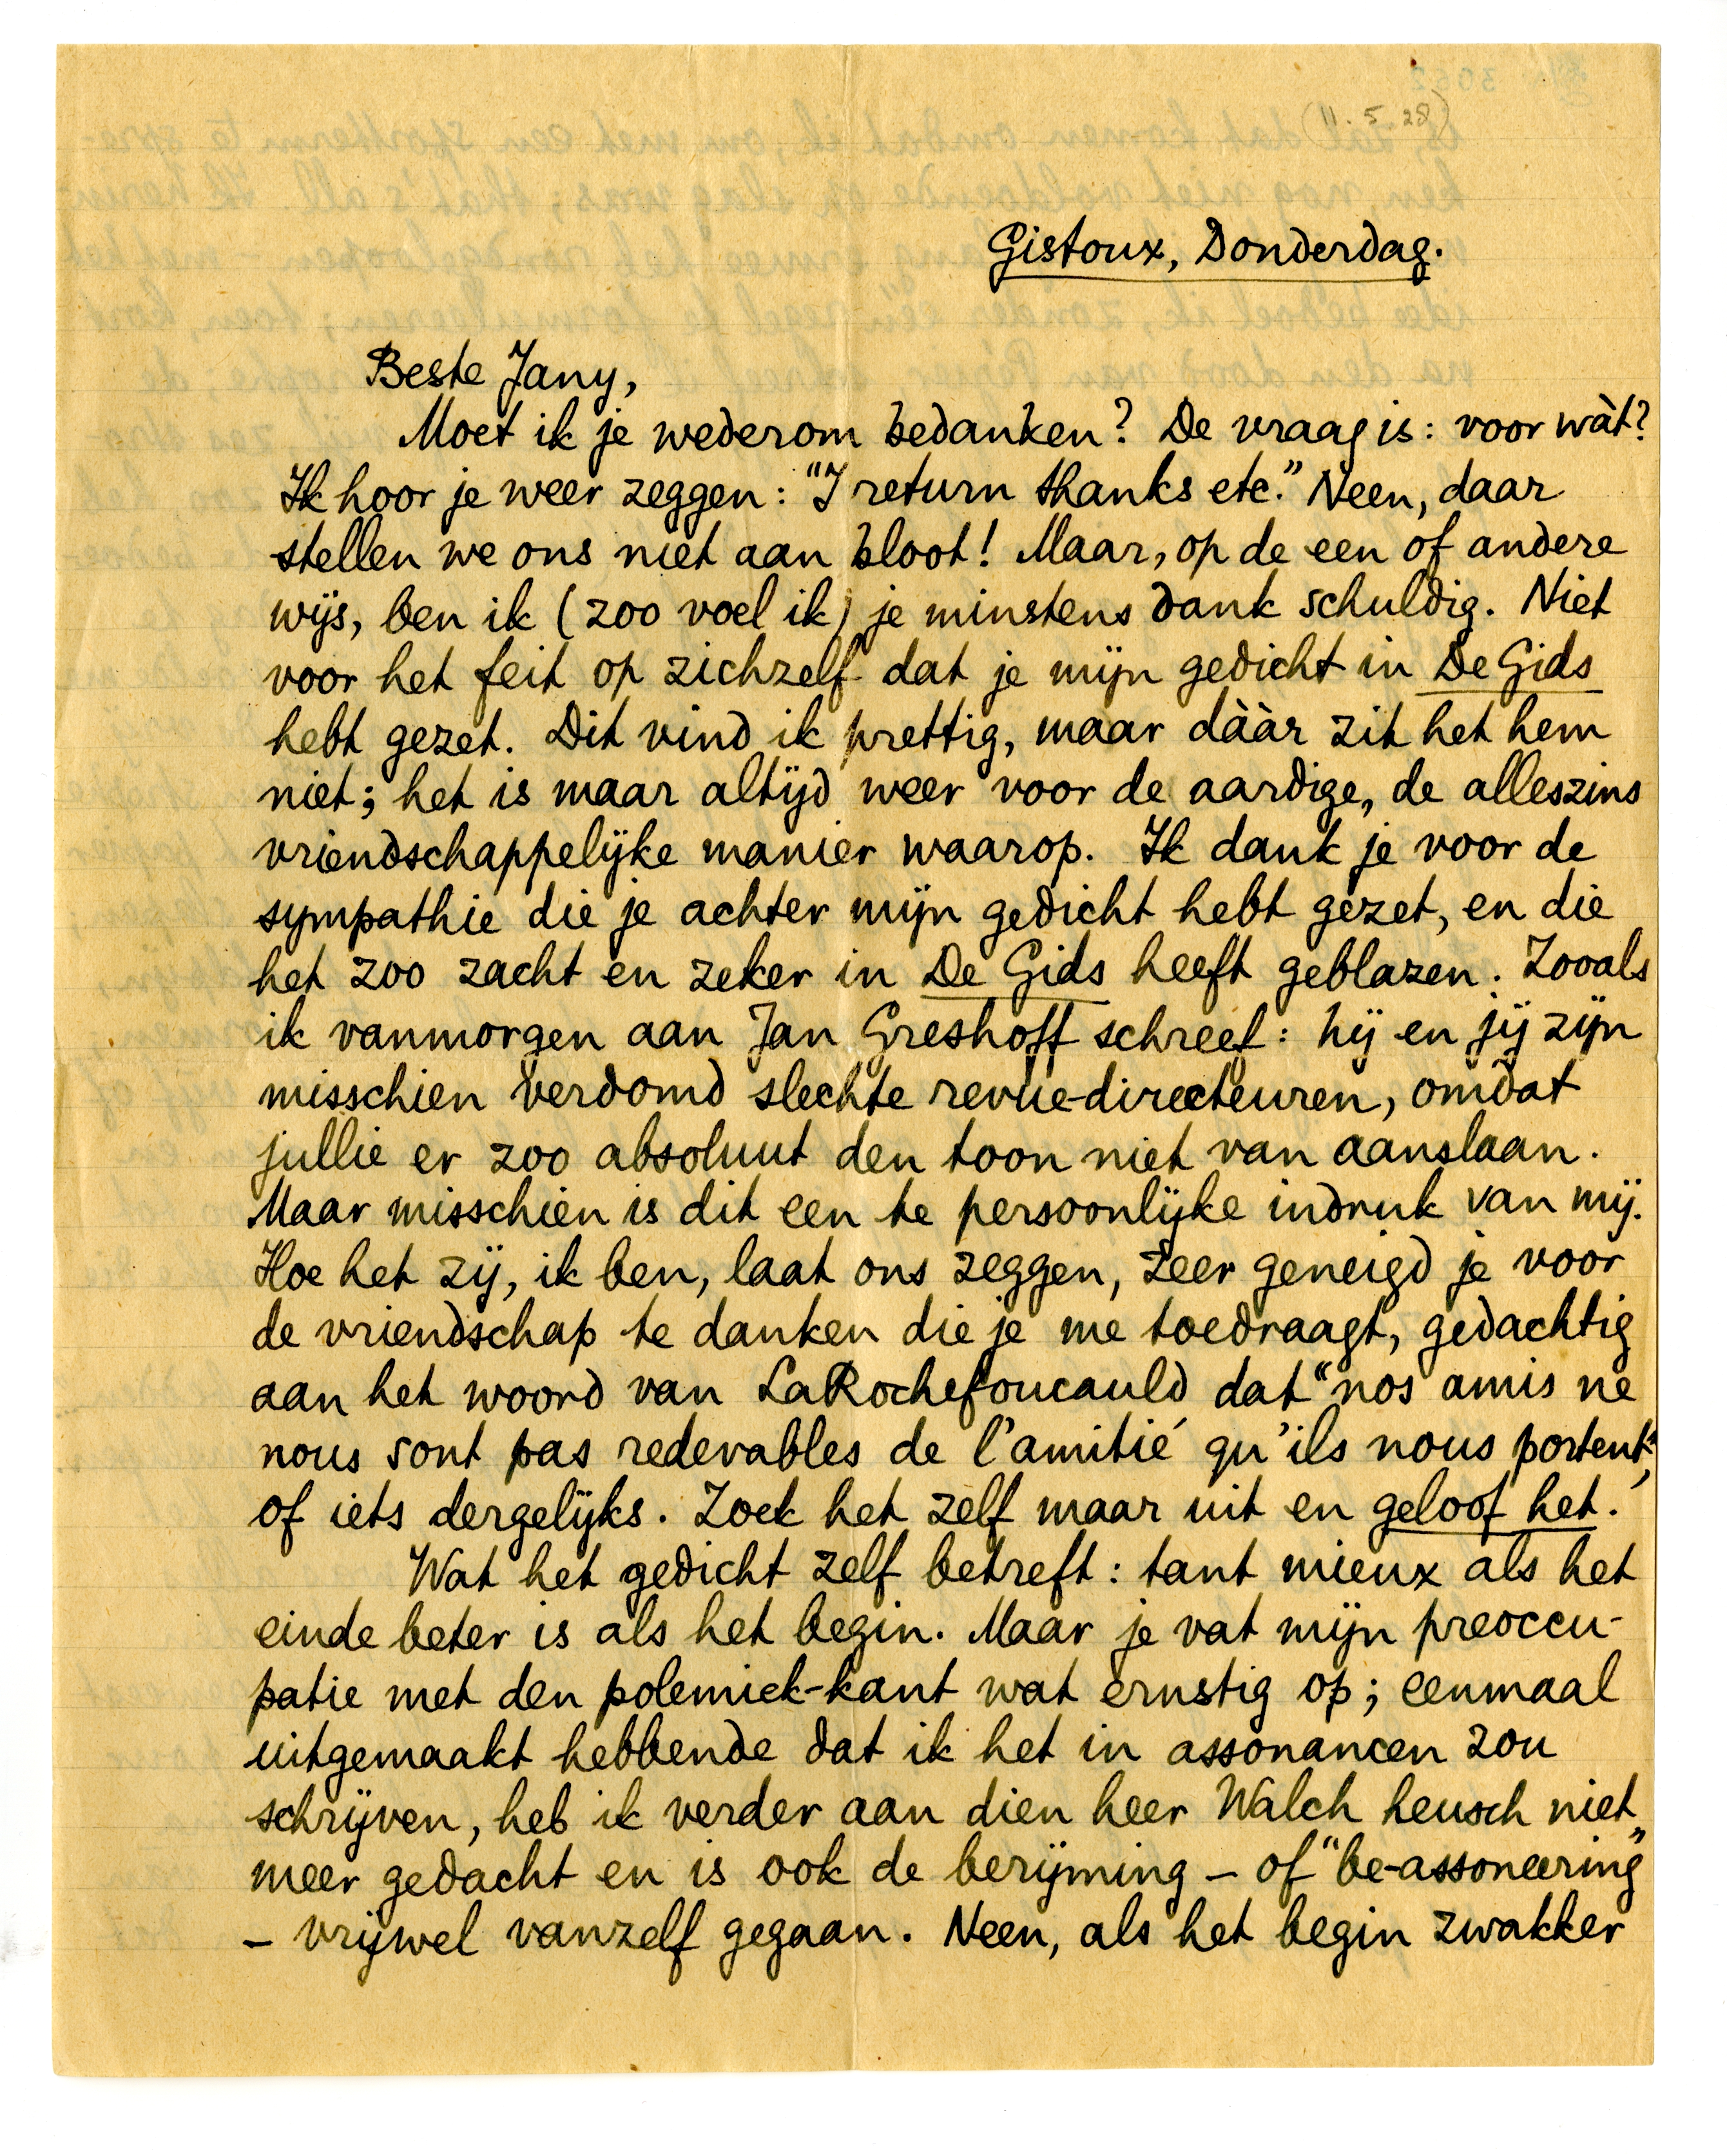 (11.5.28)
Gistoux, Donderdag.
Beste Jany,
Moet ik je wederom bedanken? De vraag is: voor wàt?
Ik hoor je weer zeggen: "I return thanks etc." Neen, daar
stellen we ons niet aan bloot! Maar, op de een of andere
wijs, ben ik (zoo voel ik) je minstens dank schuldig. Niet
voor het feit op zichzelf dat je mijn gedicht in De Gids
hebt gezet. Dit vind ik prettig, maar dààr zit het hem
niet; het is maar altijd weer voor de aardige, de alleszins
vriendschappelijke manier waarop. Ik dank je voor de
sympathie die je achter mijn gedicht hebt gezet, en die
het zoo zacht en zeker in De Gids heeft geblazen. Zooals
ik vanmorgen aan Jan Greshoff schreef: hij en jij zijn
misschien verdomd slechte revue-directeuren, omdat
jullie er zoo absoluut den toon niet van aanslaan.
Maar misschien is dit een te persoonlijke indruk van mij.
Hoe het zij, ik ben, laat ons zeggen, zeer geneigd je voor
de vriendschap te danken die je me toedraagt, gedachtig
aan het woord van LaRochefoucauld dat "nos amis ne
nous sont pas redevables de l'amitié qu'ils nous portent",
of iets dergelijks. Zoek het zelf maar uit en geloof het.
Wat het gedicht zelf betreft: tant mieux als het
einde beter is als het begin. Maar je vat mijn preoccu-
patie met den polemiek-kant wat ernstig op; eenmaal
uitgemaakt hebbende dat ik het in assonancen zou
schrijven, heb ik verder aan dien heer Walch heusch niet
meer gedacht en is ook de berijming – of "be-assoneering"
– vrijwel vanzelf gegaan. Neen, als het begin zwakker